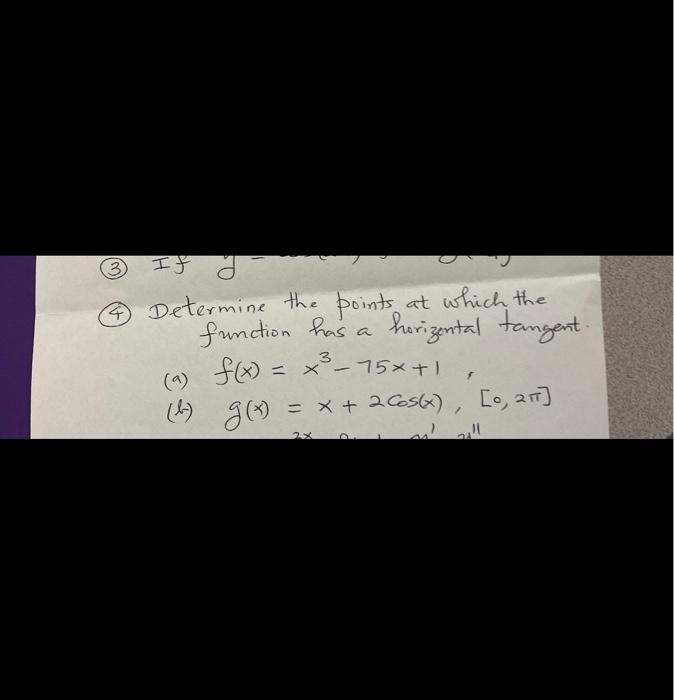 ③ If y =
④ Determine the points at which the
function has a horizontal tangent.
(a) f(x) = x³ - 75x + 1 ,
(b) g(x) = x + 2Cos(x) , [0, 2π]